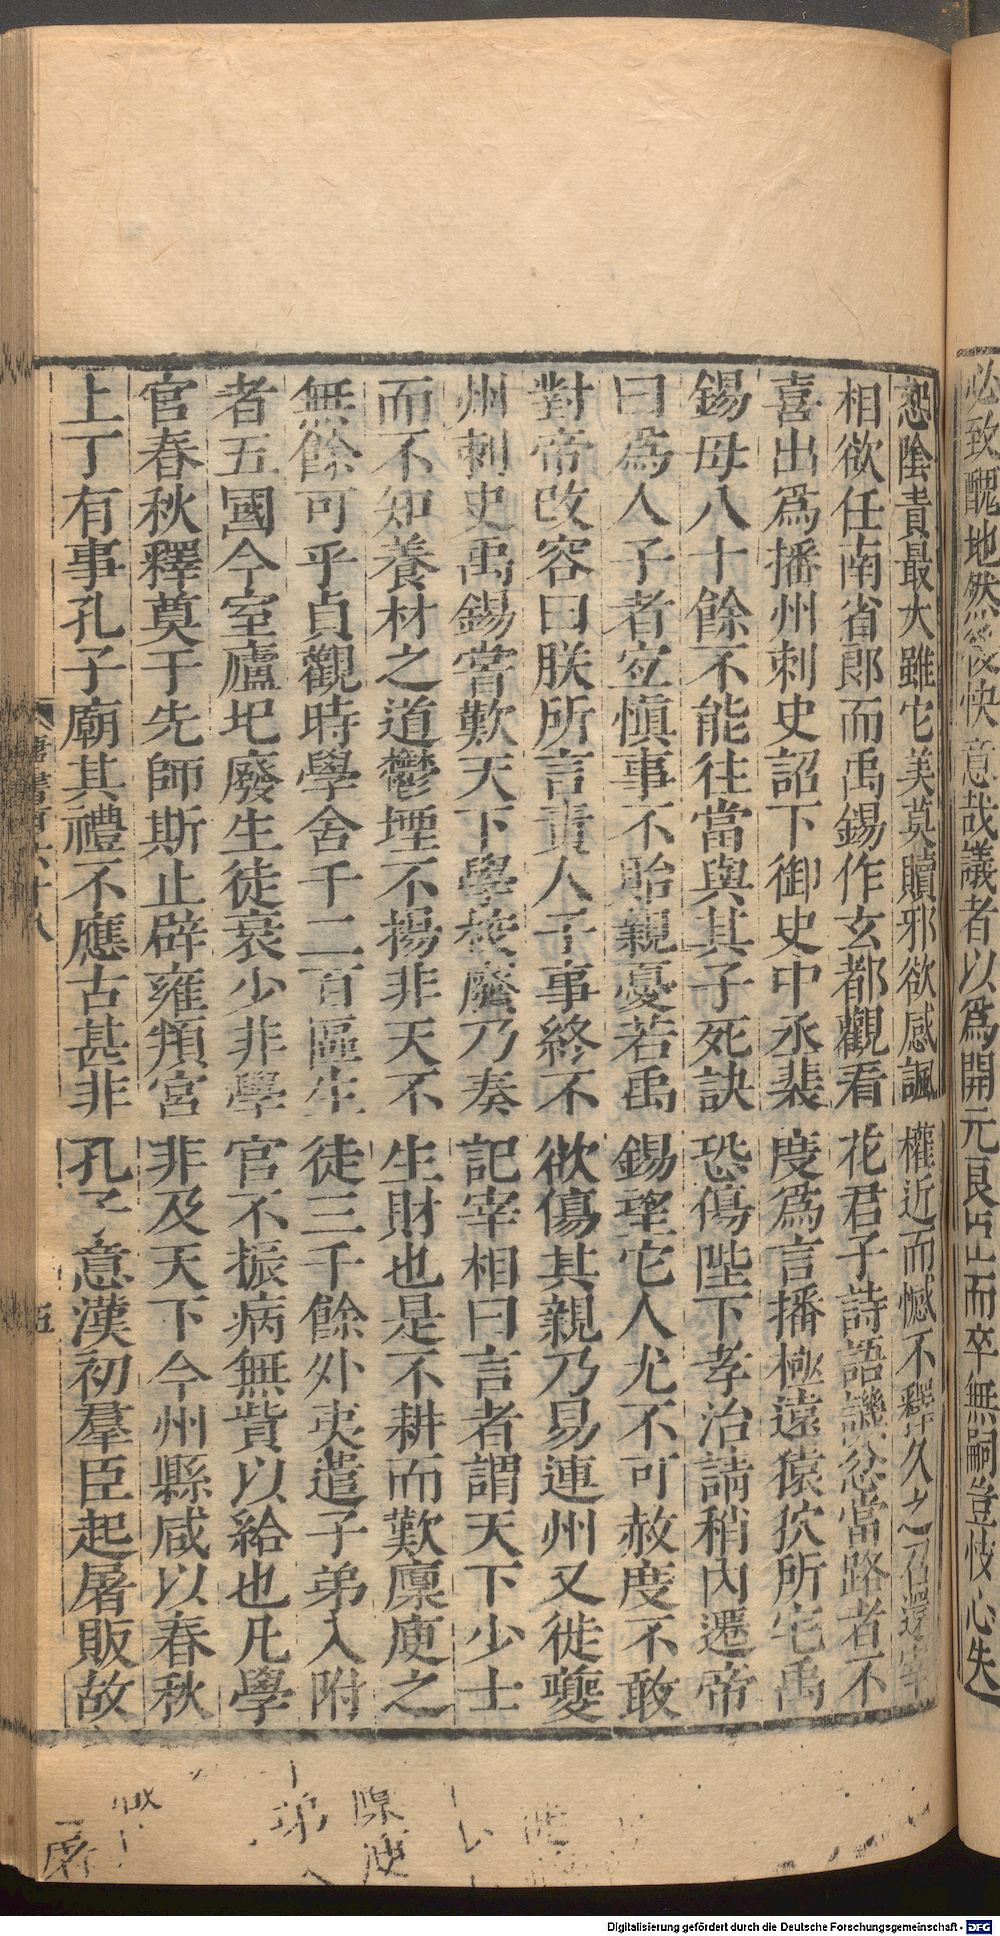 必致醜地然後快意哉議者以爲開元良臣而卒無嗣豈忮心失
恕陰責最大雖它美莫贖邪欲感諷權近而憾不釋久之召還宰
相欲任南省郎而禹錫作玄都觀看花君子詩語譏忿當路者不
喜出爲播州刺史詔下御史中丞裴度爲言播極遠猿狖所宅禹
錫母八十餘不能往當與其子死訣恐傷陛下孝治請稍內遷帝
曰爲人子者宜慎事不貽親憂若禹錫望它人尤不可赦度不敢
對帝改容曰朕所言責人子事終不欲傷其親乃易連州又徙夔
州刺史禹錫嘗歎天下學校廢乃奏記宰相曰言者謂天下少士
而不知養材之道鬱堙不揚非天不生財也是不耕而歎廩庾之
無餘可乎貞觀時學舍千二百區生徒三千餘外夷遣子弟入附
者五國今室廬圯廢生徒衰少非學官不振病無貲以給也凡學
官春秋釋奠于先師斯止辟雍頖宮非及天下今州縣咸以春秋
上丁有事孔子廟其禮不應古甚非孔子意漢初羣臣起屠販故
唐書百六十八
五
弟
Digitalisierung gefördert durch die Deutsche Forschungsgemeinschaft - DFG